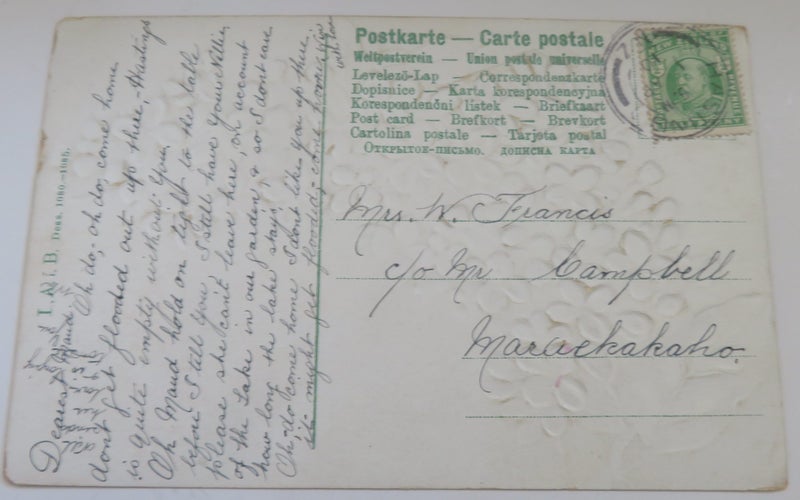 Postkarte — Carte postale
Weltpostverein — Union postale universelle
Levelező-Lap — Correspondenzkarte
Dopisnice — Karta korespondencyjna
Korespondenční listek — Briefkaart
Post card — Brefkort — Brevkort
Cartolina postale — Tarjeta postal
Открытое-письмо. дописна карта
Mrs. W. Francis
c/o Mr Campbell
Maraekakaho.
Dess. 1080—1085.
Dearest Maud
Oh do, oh do, come home
dont get flooded out up there, Hastings
is quite empty without you.
Oh Maud hold on tight to the table
before I tell you I still have your Nellie
please she can't leave here, on account
of the Lake in our garden & so I dont care
how long the lake stays,
Oh, do come home I dont like you up there
it might get flooded, come home
with love